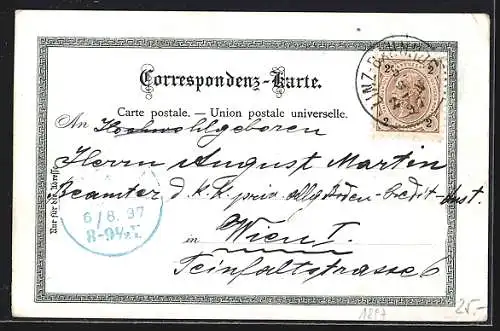 Correspondenz-Karte.
Carte postale. — Union postale universelle.
An Hochwohlgeboren
Herrn August Martin
Beamter d. k. k. priv. allg. Boden-Credit-Anst.
in Wien I.
Teinfaltstrasse 6
Nur für die Adresse
LINZ-BAHNHOF
2 2
2 2
6/8.97
8-9½V
1897
25.-